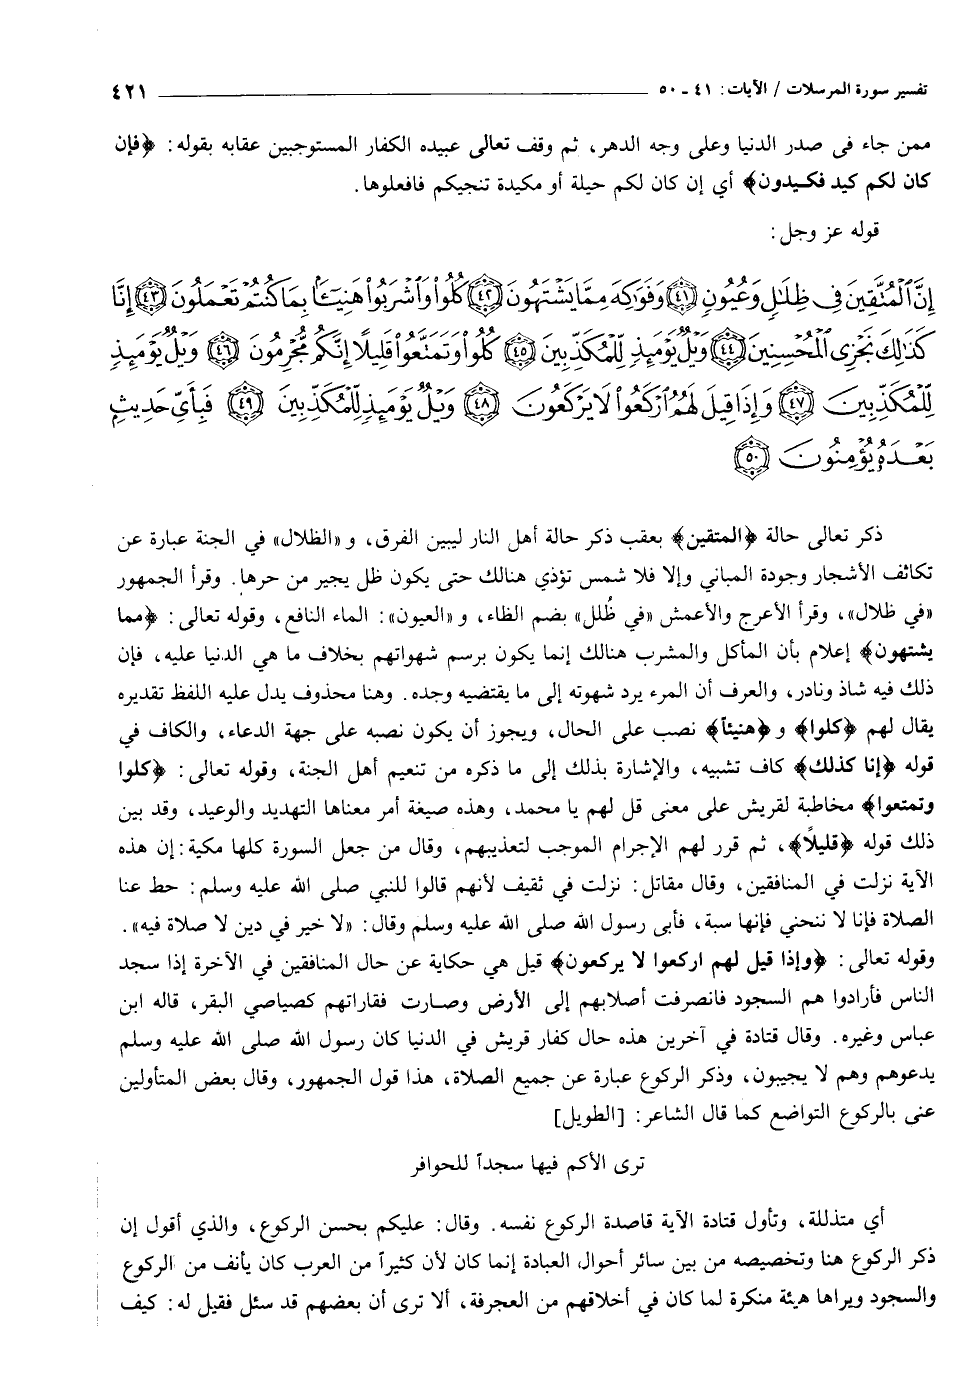 تفسير سورة المرسلات / الآيات : ٤١ - ٥٠ ــــــــ ٤٢١
ممن جاء في صدر الدنيا وعلى وجه الدهر، ثم وقف تعالى عبيده الكفار المستوجبين عقابه بقوله: ﴿فإن
كان لكم كيد فكيدون﴾ أي إن كان لكم حيلة أو مكيدة تنجيكم فافعلوها.
قوله عز وجل:
إِنَّ ٱلْمُتَّقِينَ فِى ظِلَٰلٍ وَعُيُونٍ ﴿٤١﴾ وَفَوَٰكِهَ مِمَّا يَشْتَهُونَ ﴿٤٢﴾ كُلُوا۟ وَٱشْرَبُوا۟ هَنِيٓـًٔۢا بِمَا كُنتُمْ تَعْمَلُونَ ﴿٤٣﴾ إِنَّا
كَذَٰلِكَ نَجْزِى ٱلْمُحْسِنِينَ ﴿٤٤﴾ وَيْلٌ يَوْمَئِذٍ لِّلْمُكَذِّبِينَ ﴿٤٥﴾ كُلُوا۟ وَتَمَتَّعُوا۟ قَلِيلًا إِنَّكُم مُّجْرِمُونَ ﴿٤٦﴾ وَيْلٌ يَوْمَئِذٍ
لِّلْمُكَذِّبِينَ ﴿٤٧﴾ وَإِذَا قِيلَ لَهُمُ ٱرْكَعُوا۟ لَا يَرْكَعُونَ ﴿٤٨﴾ وَيْلٌ يَوْمَئِذٍ لِّلْمُكَذِّبِينَ ﴿٤٩﴾ فَبِأَىِّ حَدِيثٍۭ
بَعْدَهُۥ يُؤْمِنُونَ ﴿٥٠﴾
ذكر تعالى حالة ﴿المتقين﴾ بعقب ذكر حالة أهل النار ليبين الفرق، و «الظلال» في الجنة عبارة عن
تكاثف الأشجار وجودة المباني وإلا فلا شمس تؤذي هنالك حتى يكون ظل يجير من حرها. وقرأ الجمهور
«في ظلال»، وقرأ الأعرج والأعمش «في ظُلل» بضم الظاء، و «العيون»: الماء النافع، وقوله تعالى: ﴿مما
يشتهون﴾ إعلام بأن المأكل والمشرب هنالك إنما يكون برسم شهواتهم بخلاف ما هي الدنيا عليه، فإن
ذلك فيه شاذ ونادر، والعرف أن المرء يرد شهوته إلى ما يقتضيه وجده. وهنا محذوف يدل عليه اللفظ تقديره
يقال لهم ﴿كلوا﴾ و ﴿هنيئاً﴾ نصب على الحال، ويجوز أن يكون نصبه على جهة الدعاء، والكاف في
قوله ﴿إنا كذلك﴾ كاف تشبيه، والإشارة بذلك إلى ما ذكره من تنعيم أهل الجنة، وقوله تعالى: ﴿كلوا
وتمتعوا﴾ مخاطبة لقريش على معنى قل لهم يا محمد، وهذه صيغة أمر معناها التهديد والوعيد، وقد بين
ذلك قوله ﴿قليلاً﴾، ثم قرر لهم الإجرام الموجب لتعذيبهم، وقال من جعل السورة كلها مكية: إن هذه
الآية نزلت في المنافقين، وقال مقاتل: نزلت في ثقيف لأنهم قالوا للنبي صلى الله عليه وسلم: حط عنا
الصلاة فإنا لا ننحني فإنها سبة، فأبى رسول الله صلى الله عليه وسلم وقال: «لا خير في دين لا صلاة فيه».
وقوله تعالى: ﴿وإذا قيل لهم اركعوا لا يركعون﴾ قيل هي حكاية عن حال المنافقين في الآخرة إذا سجد
الناس فأرادوا هم السجود فانصرفت أصلابهم إلى الأرض وصارت فقاراتهم كصياصي البقر، قاله ابن
عباس وغيره. وقال قتادة في آخرين هذه حال كفار قريش في الدنيا كان رسول الله صلى الله عليه وسلم
يدعوهم وهم لا يجيبون، وذكر الركوع عبارة عن جميع الصلاة، هذا قول الجمهور، وقال بعض المتأولين
عنى بالركوع التواضع كما قال الشاعر: [الطويل]
ترى الأكم فيها سجداً للحوافر
أي متذللة، وتأول قتادة الآية قاصدة الركوع نفسه. وقال: عليكم بحسن الركوع، والذي أقول إن
ذكر الركوع هنا وتخصيصه من بين سائر أحوال العبادة إنما كان لأن كثيراً من العرب كان يأنف من الركوع
والسجود ويراها هيئة منكرة لما كان في أخلاقهم من العجرفة، ألا ترى أن بعضهم قد سئل فقيل له: كيف